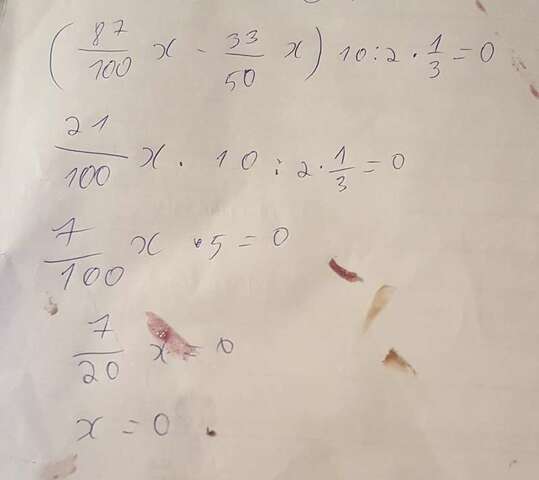 (87/100 x - 33/50 x) 10:2·1/3=0
21/100 x · 10:2·1/3=0
7/100 x ·5=0
7/20 x=0
x=0